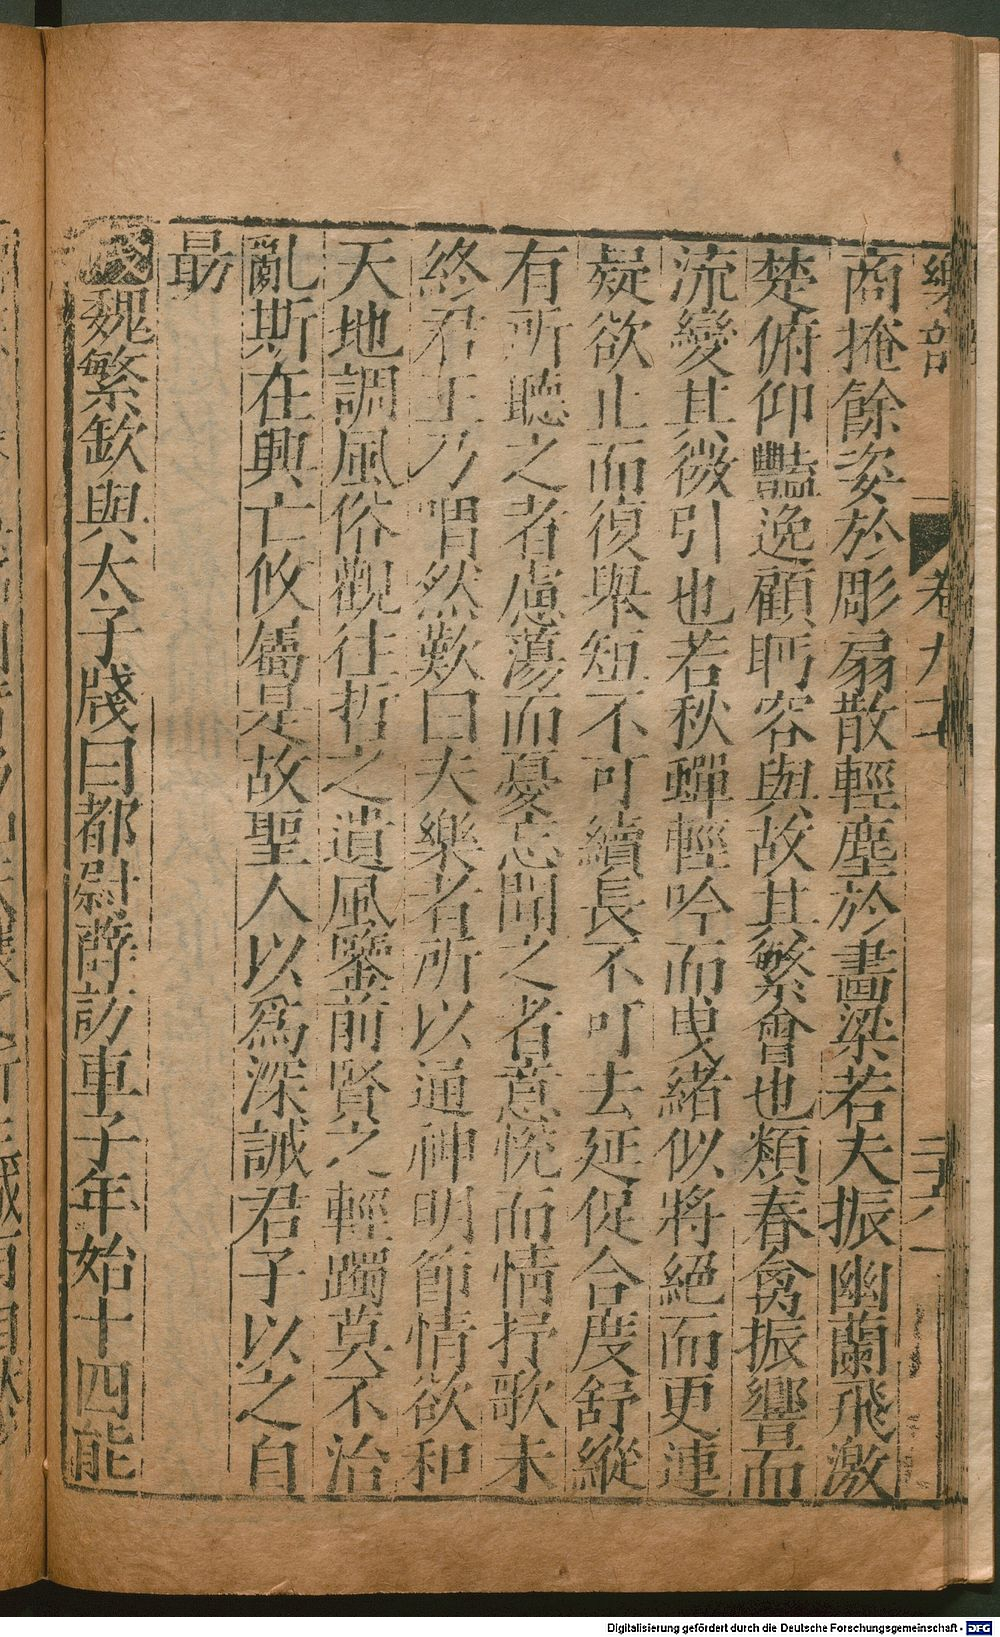 樂部
卷九十
三十六
商掩餘姿於彫扇散輕塵於畫梁若夫振幽蘭飛激
楚俯仰豔逸顧眄容與故其繁會也類春禽振響而
流變其微引也若秋蟬輕吟而曳緒似將絕而更連
疑欲止而復舉短不可續長不可去延促合度舒縱
有所聽之者慮蕩而憂忘聞之者意悅而情抒歌未
終君王乃喟然歎曰夫樂者所以通神明節情欲和
天地調風俗觀往哲之遺風鑒前賢之輕躅莫不治
亂斯在興亡攸屬是故聖人以爲深誡君子以之自
勗
魏繁欽與太子牋曰都尉薛訪車子年始十四能
Digitalisierung gefördert durch die Deutsche Forschungsgemeinschaft - DFG